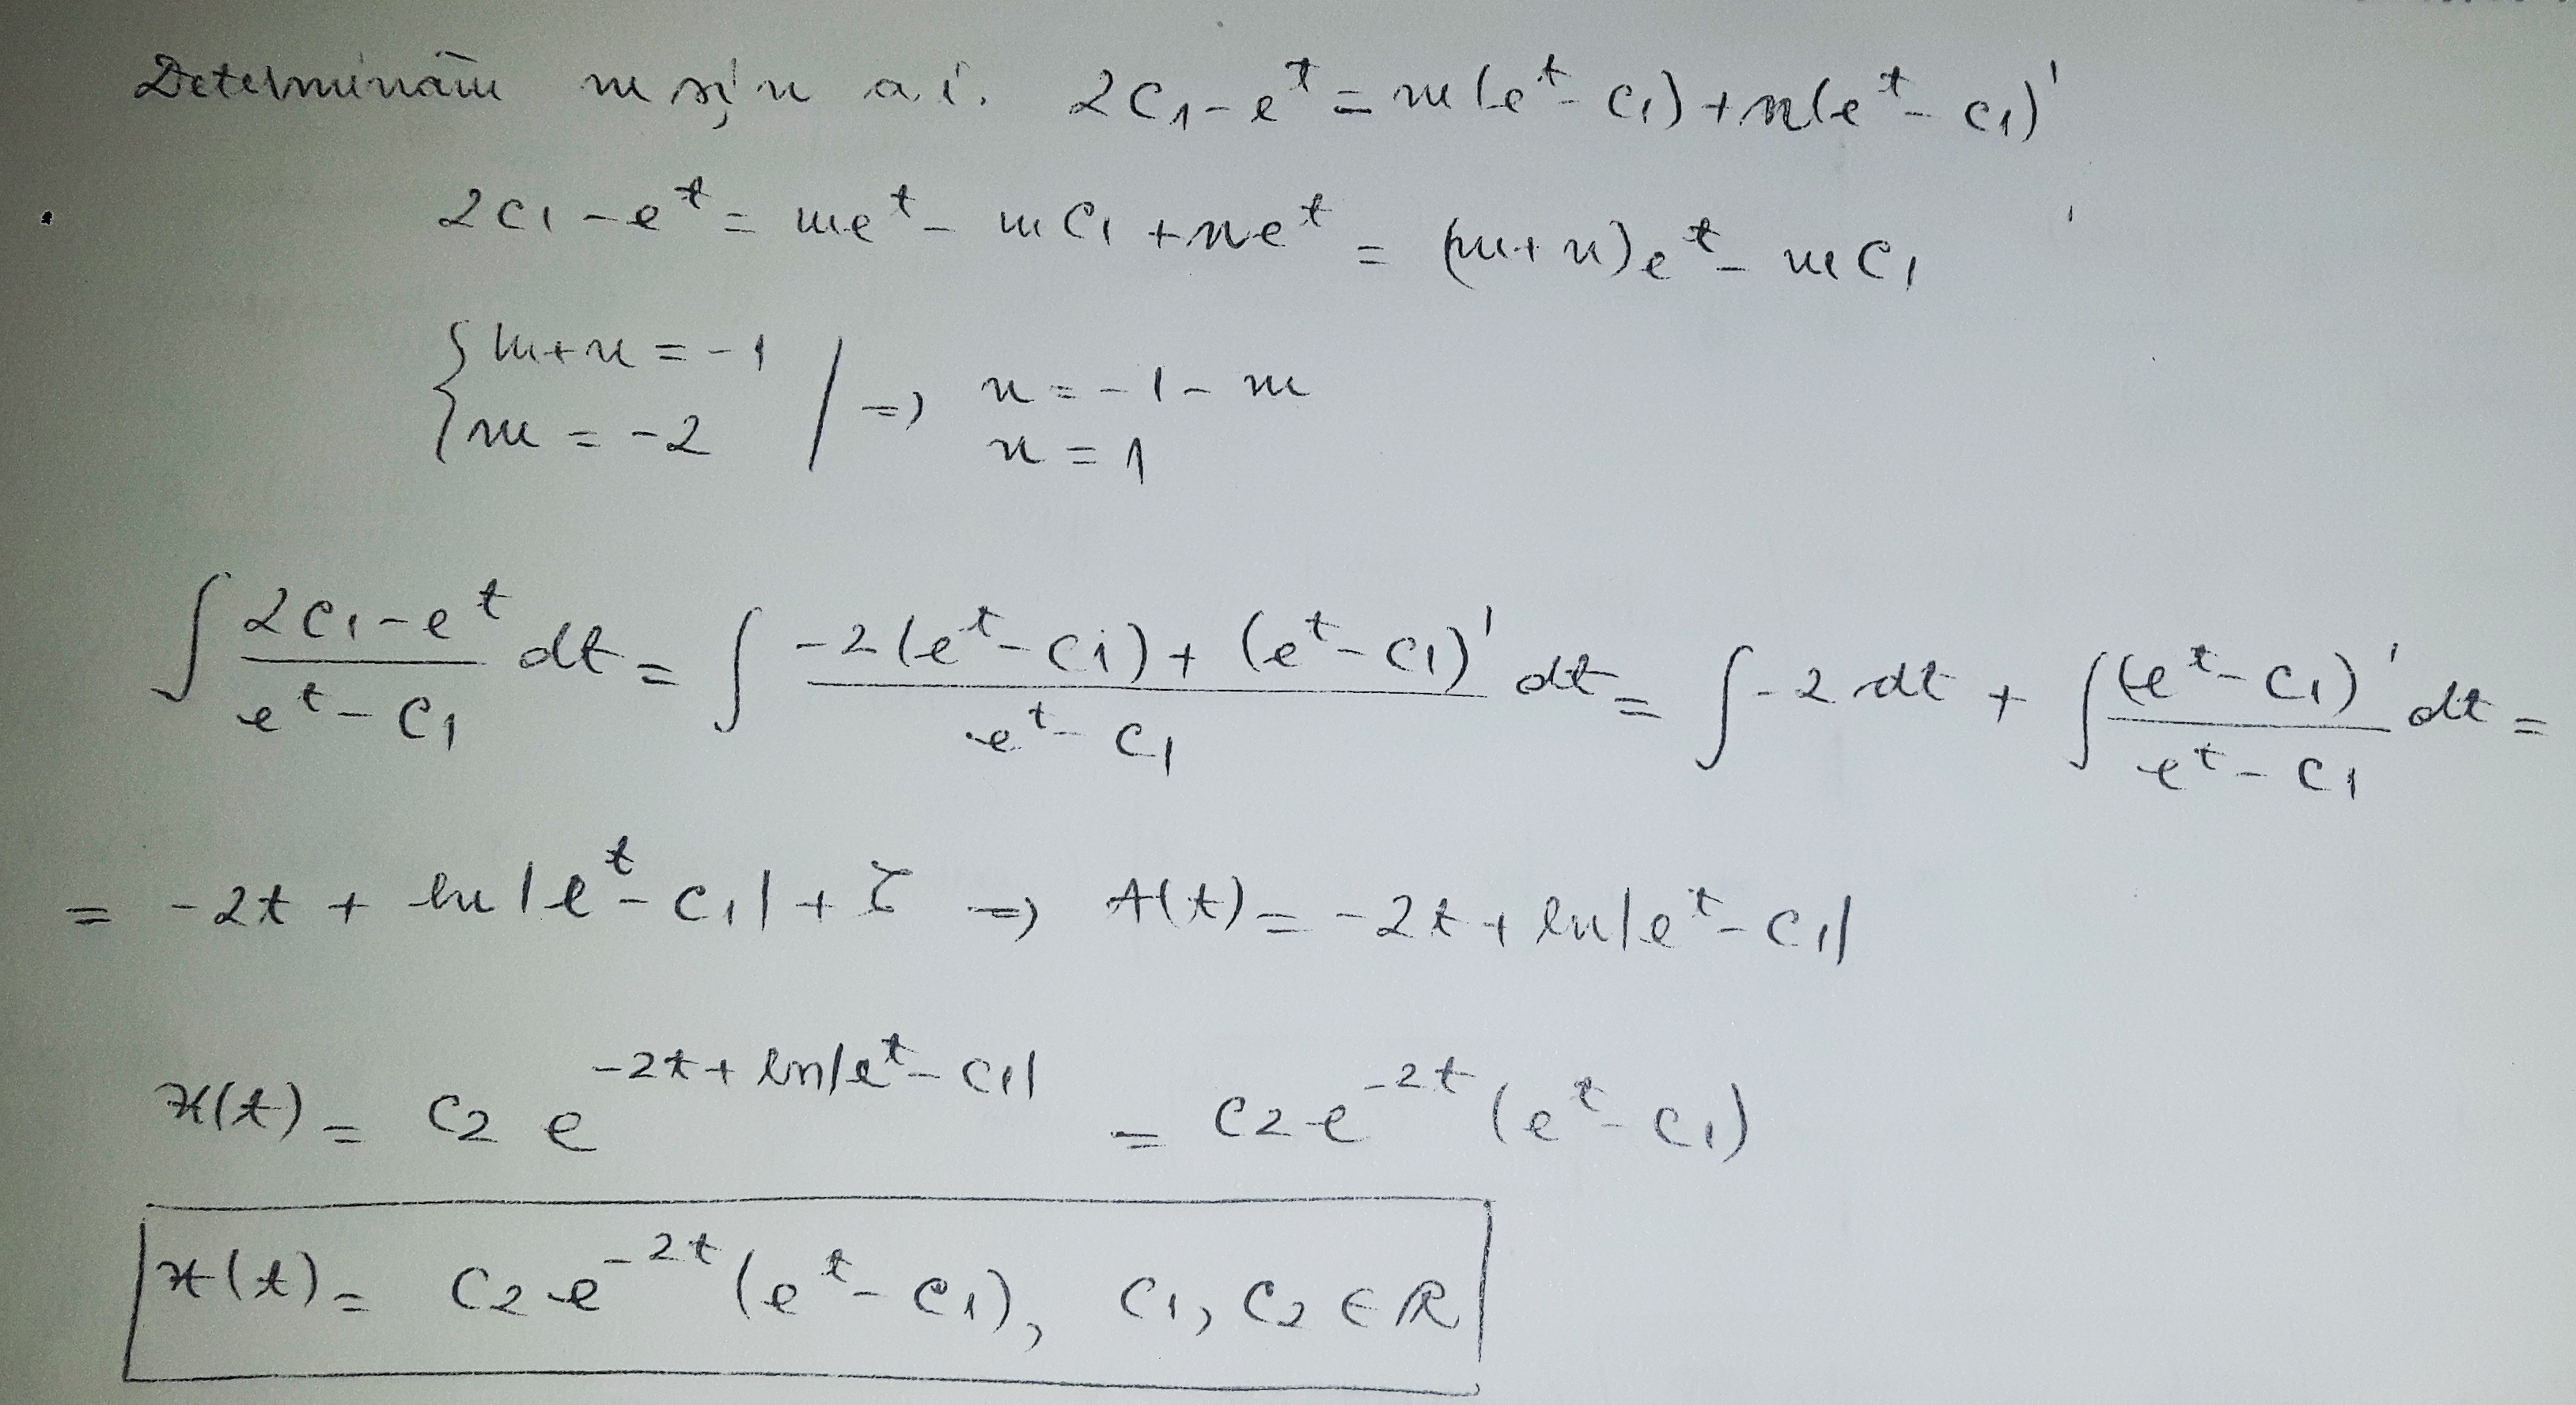 Determinăm m și n a.î. 2C₁ - eᵗ = m(eᵗ - C₁) + n(eᵗ - C₁)'
2C₁ - eᵗ = meᵗ - mC₁ + neᵗ = (m+n)eᵗ - mC₁
{ m+n = -1 / => n = -1 - m
{ m = -2 / n = 1
∫ (2C₁ - eᵗ)/(eᵗ - C₁) dt = ∫ (-2(eᵗ - C₁) + (eᵗ - C₁)')/(eᵗ - C₁) dt = ∫ -2 dt + ∫ (eᵗ - C₁)'/(eᵗ - C₁) dt =
= -2t + ln|eᵗ - C₁| + ζ => A(t) = -2t + ln|eᵗ - C₁|
x(t) = C₂ e^(-2t + ln|eᵗ - C₁|) = C₂ e^(-2t) (eᵗ - C₁)
x(t) = C₂ e^(-2t) (eᵗ - C₁), C₁, C₂ ∈ ℝ